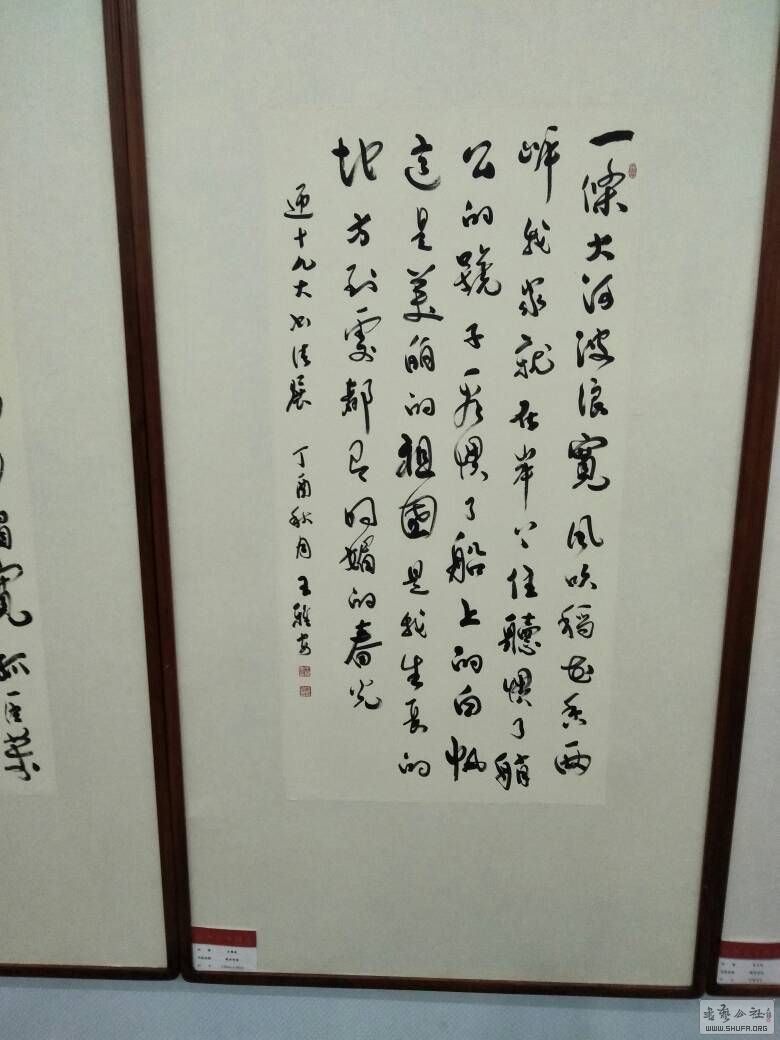 一條大河波浪寬風吹稻花香兩
岸我家就在岸上住聽慣了艄
公的號子看慣了船上的白帆
這是美丽的祖國是我生長的
地方到處都有明媚的春光
迎十九大书法展 丁酉秋月 王雅安
书艺公社
WWW.SHUFA.ORG